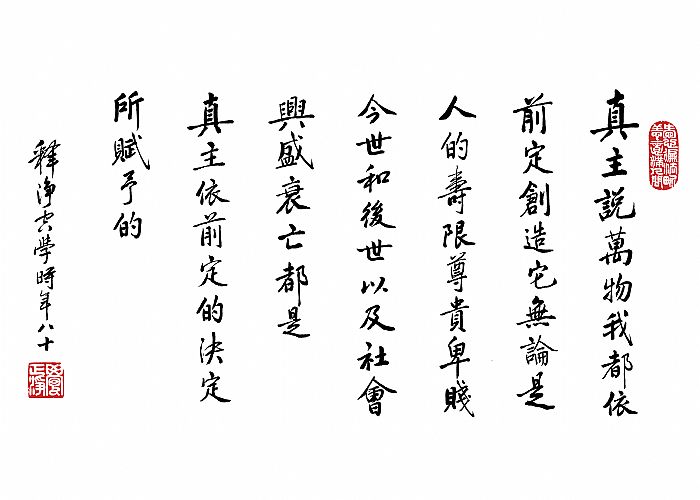 真主說萬物我都依
前定創造它無論是
人的壽限尊貴卑賤
今世和後世以及社會
興盛衰亡都是
真主依前定的決定
所賦予的
釋淨空學時年八十